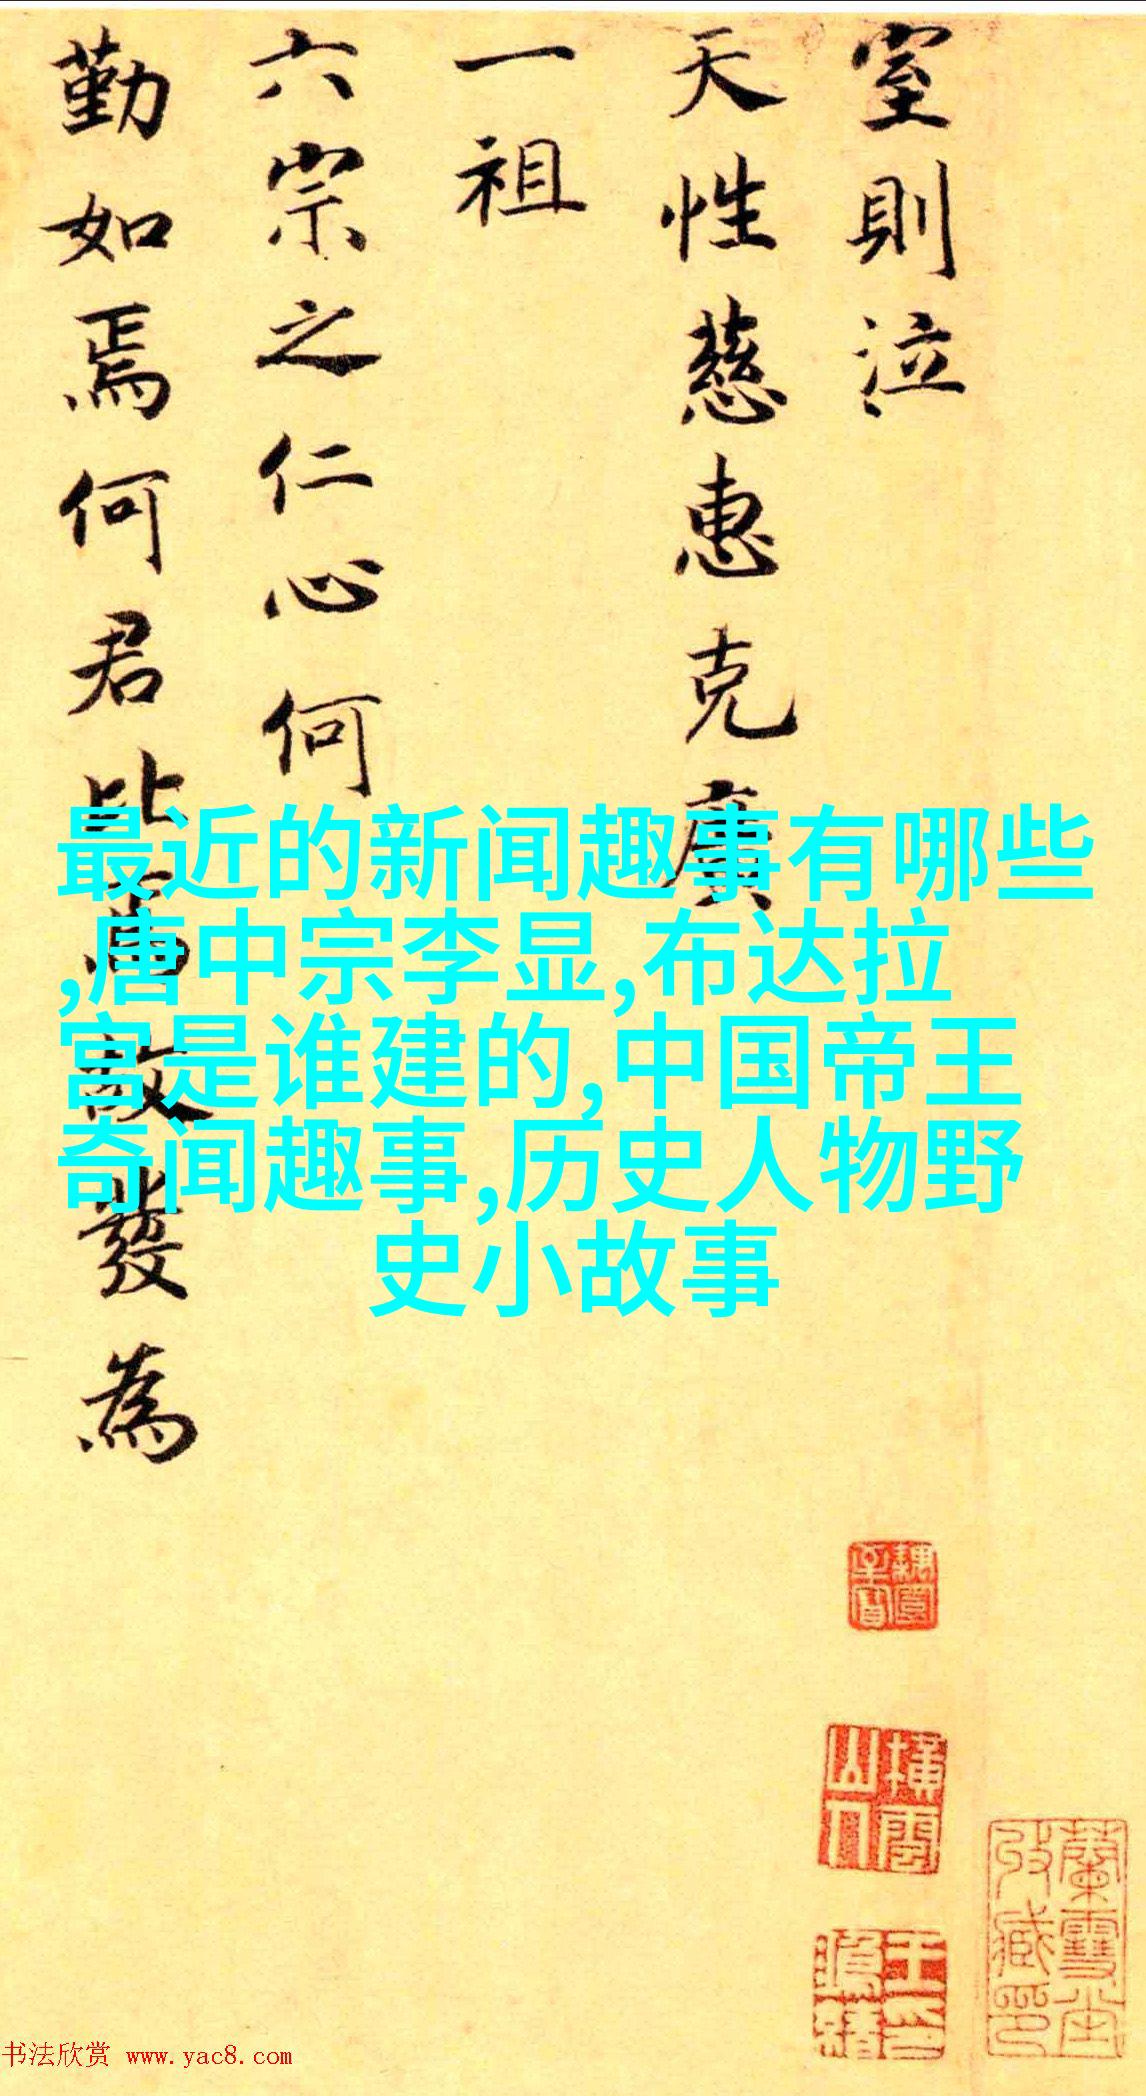 室則泣
天性慈惠克廣
一祖
六宗之仁心何
勤如焉何君此舊故發為
最近的新闻趣事有哪些
,唐中宗李显,布达拉
宫是谁建的,中国帝王
奇闻趣事,历史人物野
史小故事
蘭雪堂收藏印
书法欣赏 www.yac8.com